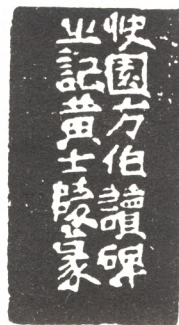 快園方伯讀碑
之記黃士陵篆